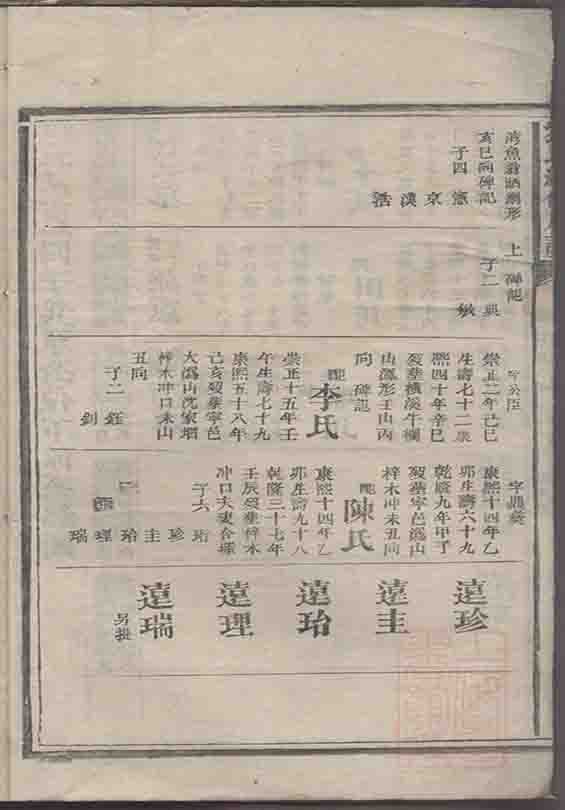 湾魚翁晒網形
亥巳向碑記
子四 憲 京 漢 浩
上 碑記
子二 典
敏
字公臣
崇正二年己巳
生壽七十二康
熙四十年辛巳
歿葬橫溪牛欄
山潙形壬山丙
向 碑記
配李氏
崇正十五年壬
午生壽七十九
康熙五十八年
己亥歿葬寧邑
大潙山沈家塅
梓木冲口未山
丑向
子二 鈺 釗
康熙十四年乙
卯生壽六十九
乾隆九年甲子
歿葬寧邑潙山
梓木冲未丑向
配陳氏
康熙十四年乙
卯生壽九十八
乾隆三十七年
壬辰歿葬梓木
冲口夫妻合塚
子六 珩 珍 圭 珆 理 瑞
遠珍
遠圭
遠珆
遠理
遠瑞
另提